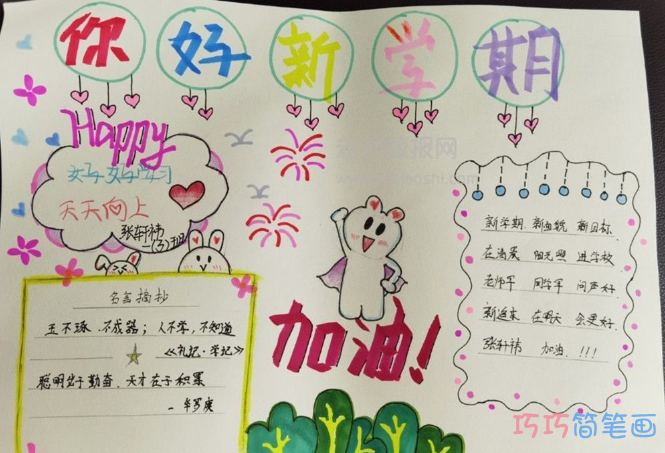 你好新学期
Happy
好好学习
天天向上
张轩祎
一(3)班
名言摘抄
玉不琢、不成器；人不学，不知道
《礼记·学记》
聪明出于勤奋、天才在于积累
－华罗庚
加油!
新学期 新面貌 新目标
在清晨 阳光照 进学校
老师早 同学早 问声好
在明天 会更好
张轩祎 加油.!!!
巧巧简笔画